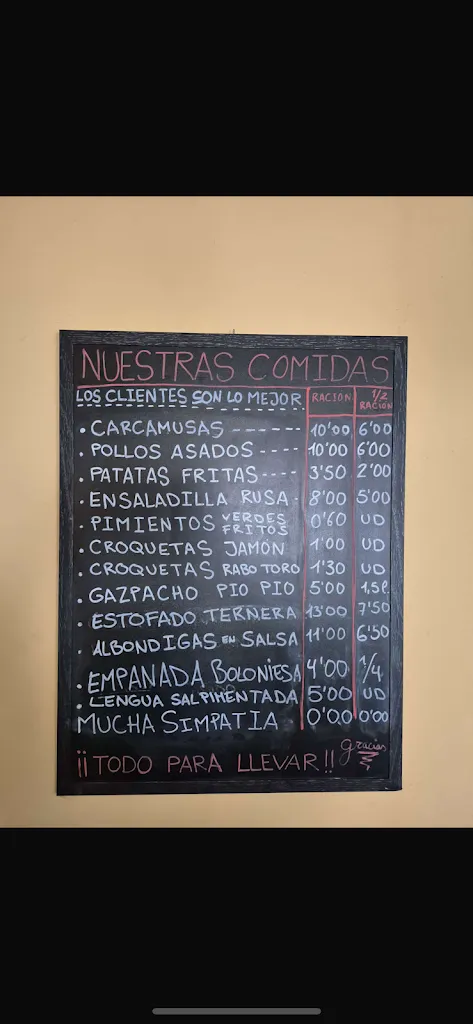 NUESTRAS COMIDAS
LOS CLIENTES SON LO MEJOR RACION 1/2 RACION
. CARCAMUSAS ------ 10'00 6'00
. POLLOS ASADOS ---- 10'00 6'00
. PATATAS FRITAS ---- 3'50 2'00
. ENSALADILLA RUSA - 8'00 5'00
. PIMIENTOS VERDES FRITOS 0'60 UD
. CROQUETAS JAMÓN 1'00 UD
. CROQUETAS RABO TORO 1'30 UD
. GAZPACHO PIO PIO 5'00 1,5L
. ESTOFADO TERNERA 13'00 7'50
. ALBONDIGAS EN SALSA 11'00 6'50
. EMPANADA BOLOÑIESA 4'00 1/4
. LENGUA SALPIMENTADA 5'00 UD
MUCHA SIMPATIA 0'00 0'00
¡¡TODO PARA LLEVAR!! gracias